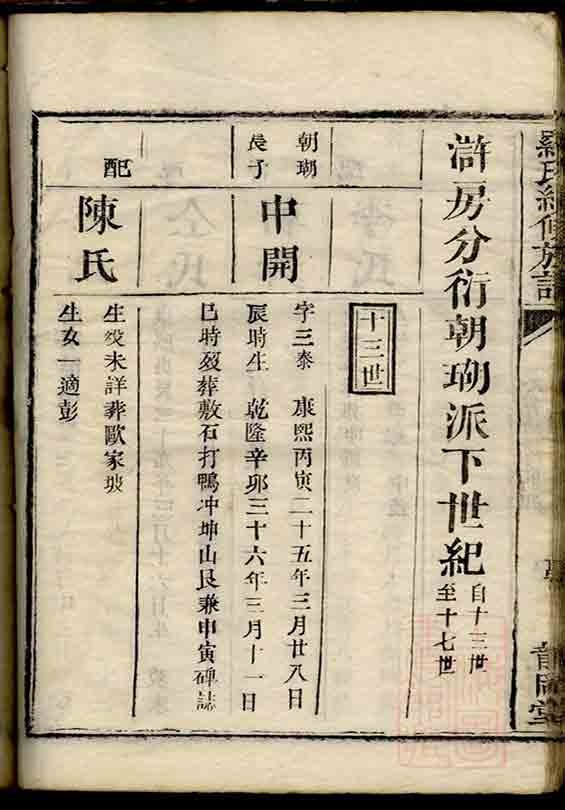 滸房分衍朝瑚派下世紀
自十三世
至十七世
十三世
朝瑚
長子
中開
字三泰 康熙丙寅二十五年三月廿八日
辰時生 乾隆辛卯三十六年三月十一日
巳時歿葬敷石打鴨冲坤山艮兼申寅碑誌
配
陳氏
生歿未詳葬歐家坡
生女一適彭